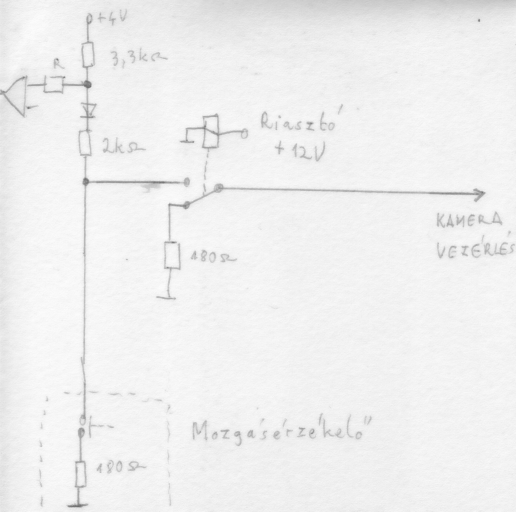 +4V
3,3kΩ
R
2kΩ
Riasztó
+12V
KAMERA
VEZÉRLÉS
180Ω
Mozgásérzékelő
180Ω